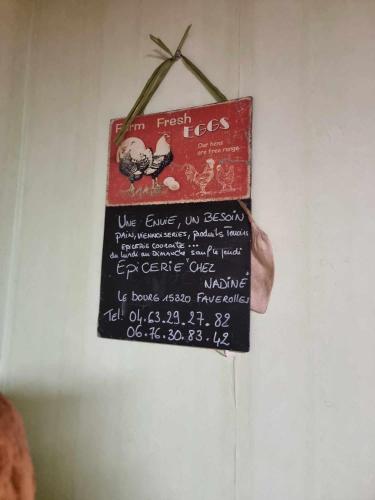 Farm Fresh
EGGS
Our hens
are free range
UNE ENVIE, UN BESOIN
PAIN, VIENNOISERIES, produits Terroirs
EPICERIE COURANTE...
du lundi au Dimanche sauf le jeudi
EPICERIE CHEZ
NADINE
LE BOURG 15320 FAVEROLLES
Tel: 04.63.29.27.82
06.76.30.83.42